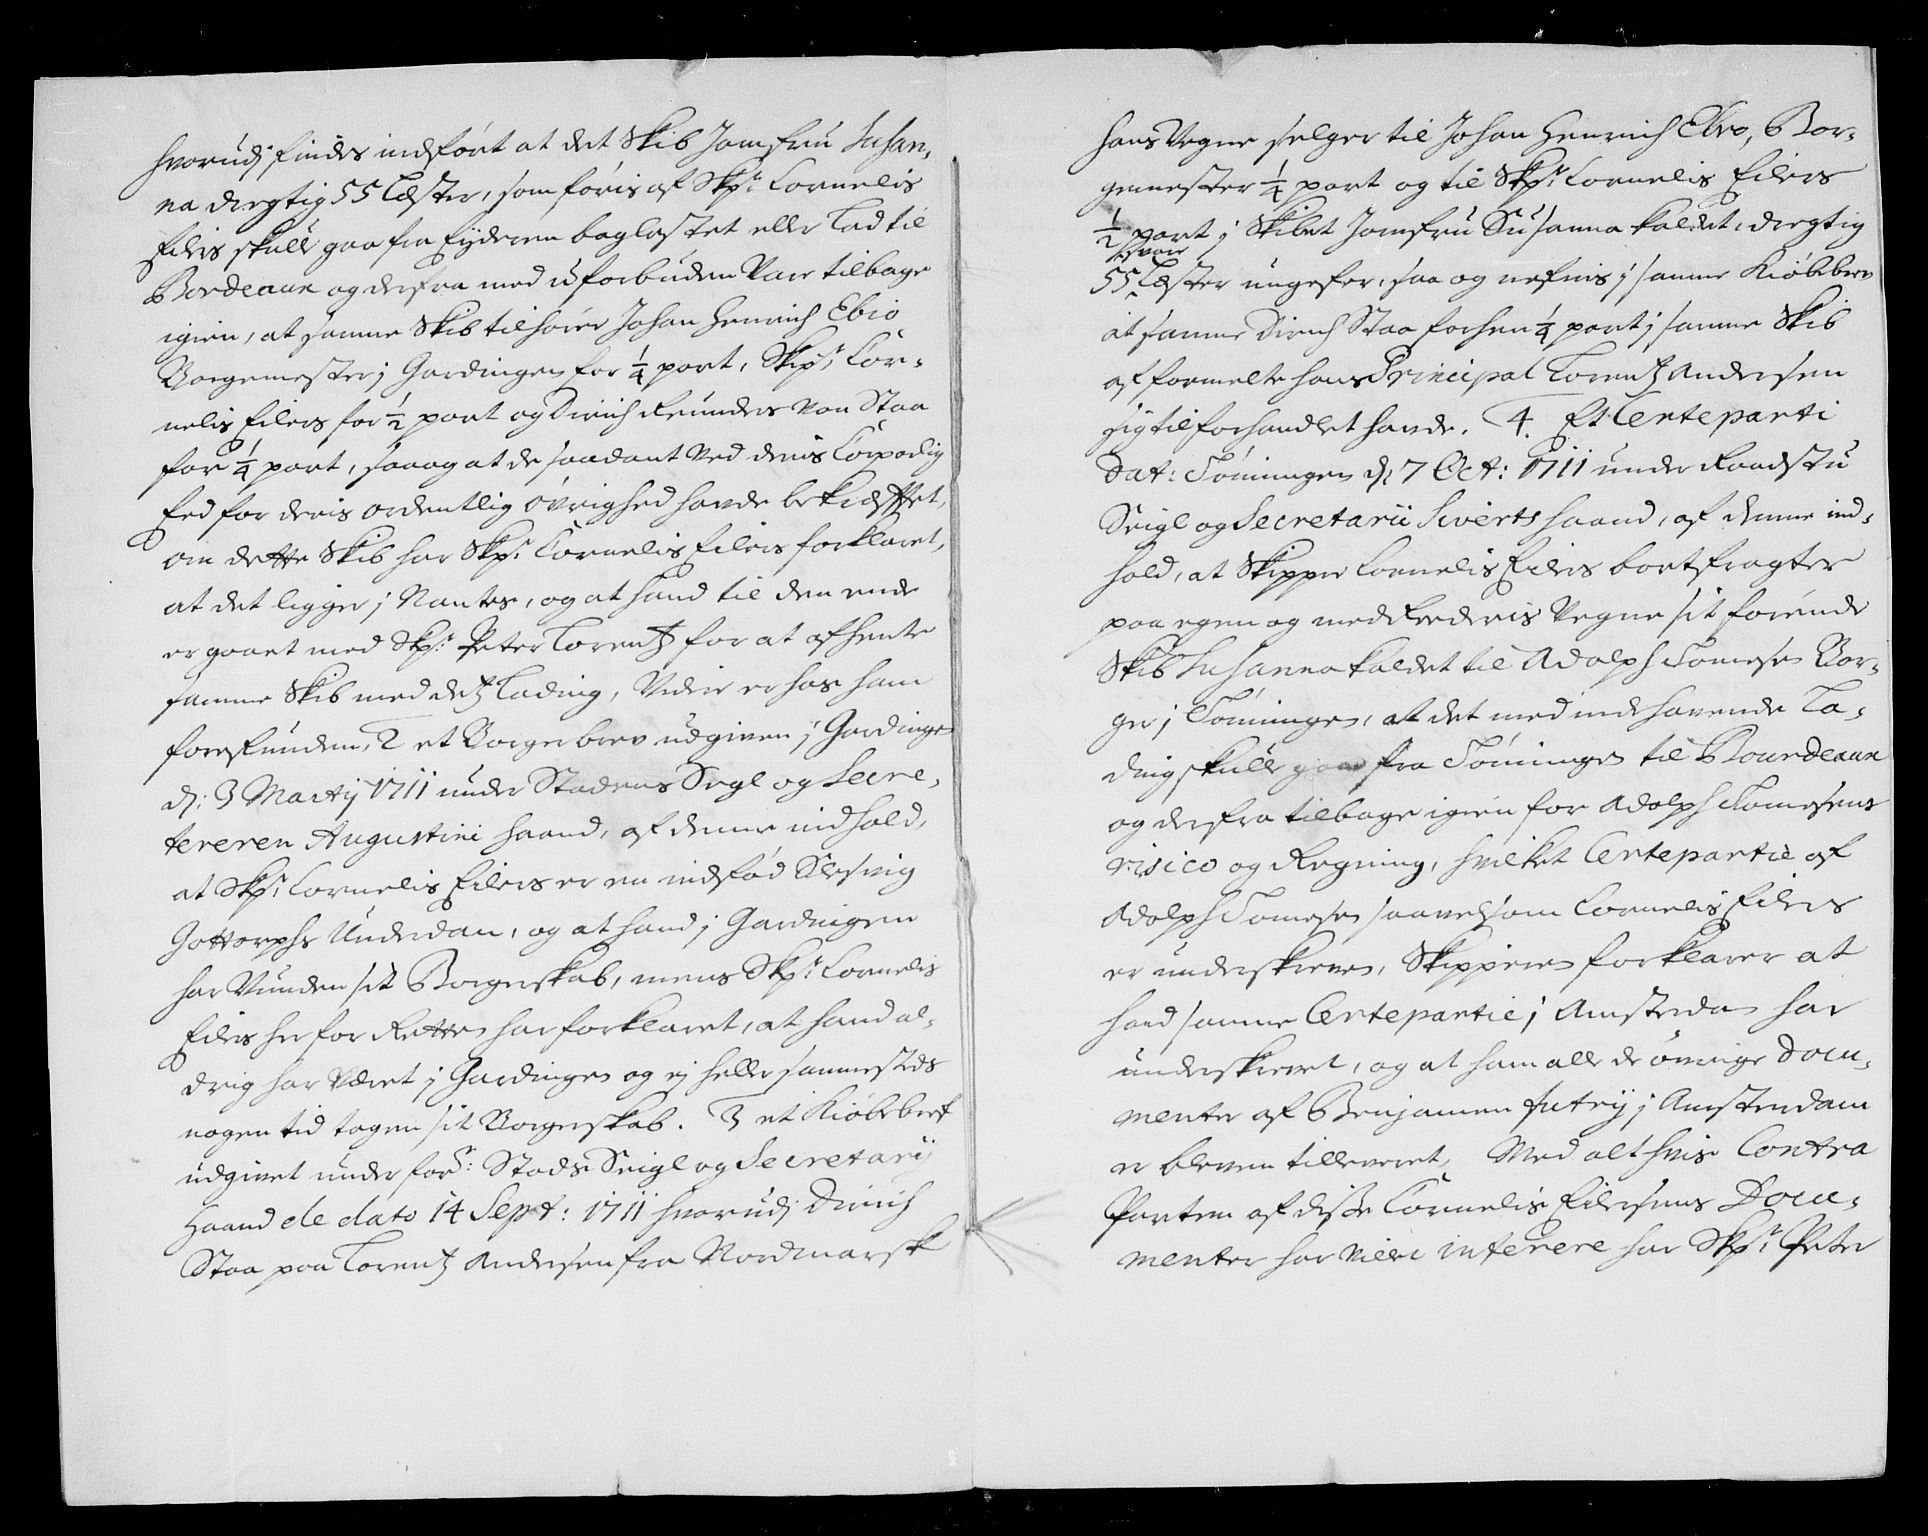 hvorudj findes indført at det Skib Jomfru Susan,
na dregtig 55 Læster, som føris af Skpr: Cornelis
Eilers skulle gaa fra Eyderen baglastet eller Lad til
Bordeaux og derfra med uforbuden Vare tilbage
igien, at samme Skib tilhører Johan Henrich Ebio
Borgemester j Gardingen for 1/4 part, Skipr: Cor-
nelis Eilers for 1/2 part og Dirich Reinders von Staa
for 1/4 part, saa og at de saadant ved deris Corporlig
Eed for deris ordentlig Øvrighed hafde bekræfftet,
om dette Skib har Skpr: Cornelis Eilers forklaret,
at det ligger j Nantes, og at hand til den ende
er gaaet med Skpr: Peter Lorentz for at afhente
samme Skib med detz Lading, Videre er hos ham
forefunden, 2 et Borgerbrev udgiven j Gardingen
d: 3 Martij 1711 under Stadens Segl og Secre,
tereren Augustini haand, af denne indhold,
at Skpr: Cornelis Eilers er en indfød Slesvig
Gottorphs Underdan, og at hand j Gardingen
har Vunden sit Borgerskab, mens Skpr: Cornelis
Eilers her for Retten har forklaret, at hand al,
drig har Været j Gardingen og ej heller sammesteds
nogen tid tagen sit Borgerskab. 3 et Kiøbebref
udgivet under forn: Stads Seigl og Secretarij
Haand de dato 14 Sept: 1711 hvorudj Dirich
Staa paa Lorentz Andersen fra Nordmarsk
hans Vegne selger til Johan Henrich Ebio, Bor-
gemester 1/4 part og til Skpr: Cornelis Eilers
1/2 part j Skibet Jomfru Susanna kaldet, dregtig
svare
55 Læster ungefer, saa og nefnis j samme Kiøbebrev
at samme Dirich Staa forhen 1/4 part j samme Skib
af formelte hans Principal Lorentz Andersen
sig tilforhandlet hafde. 4. Et Certeparti
Dat: Tønningen d: 7 Oct: 1711 under Raadstu
Seigl og Secretarii Siverts haand, af denne ind,
hold, at Skipper Cornelis Eilers bortfragter
paa egen og med Reederis Vegne sit førende
Skib Susanna kaldet til Adolph Tomesen Bor-
ger j Tønningen, at det med indehavende La-
ding skulle gaae fra Tønningen til Bourdeaux
og derfra tilbage igien for Adolph Tomesens
risico og Regning, hvilket Certepartie af
Adolph Tomesen saavelsom Cornelis Eilers
er underskreven, Skipperen forklarer at
hand samme Certepartie j Amsterdam har
underskrevet, og at ham alle de øvrige Docu,
menter af Benjamen j Amsterdam
er bleven tilleveret. Med alt hvis Contra
Parten af disse Cornelis Eilersens Docu-
menter har villet inferere har Skpr: Peter